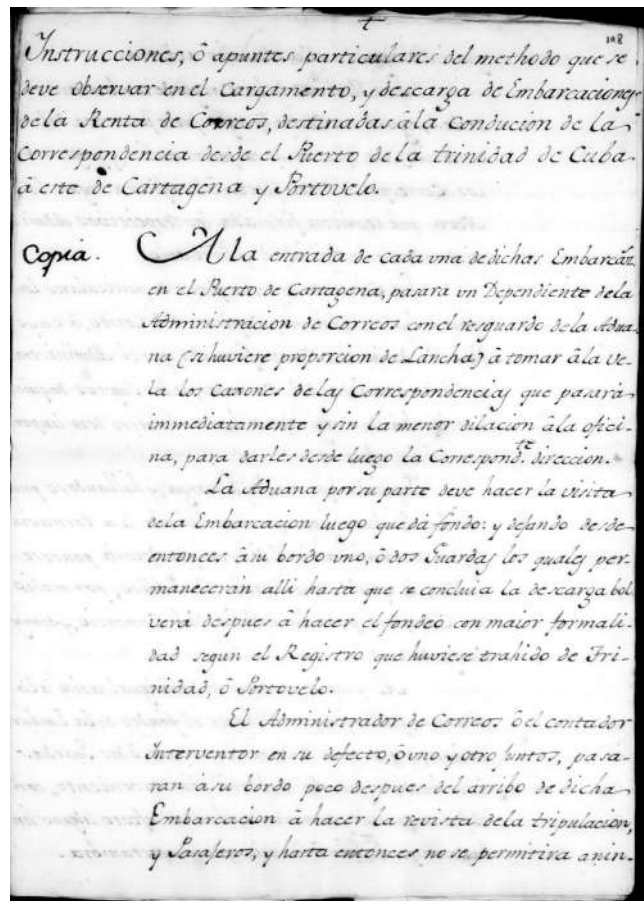 108
Instrucciones, ô apuntes particulares del methodo que se
deve observar en el Cargamento, y descarga de Embarcaciones
dela Renta de Correos, destinadas âla conducion de la
Correspondencia desde el Puerto de la trinidad de Cuba
â esta de Cartagena y Portovelo.
Copia. A la entrada de cada vna dedichas Embarcãz.
en el Puerto de Cartagena, pasará vn Dependiente dela
Administracion de Correos con el resguardo dela Adua-
na (si huviere proporcion de Lancha) â tomar âla ve-
la los Caxones delas Correspondencias que pasará
immediatamente y sin la menor dilacion âla ofici-
na, para darles desde luego la Correspond.te direccion.
La Aduana por su parte deve hacer la visita
dela Embarcacion luego que dá fondo: y dejando desde
entonces âsu bordo vno, ô dos Guardas los quales per-
manecerán alli hasta que se concluia la descarga bol
verá despues â hacer el fondeo con maior formali-
dad segun el Registro que huviese trahido de Tri-
nidad, ô Portovelo.
El Administrador de Correos ô el contador
Interventor en su defecto, ô vno y otro juntos, pasa-
ran âsu bordo poco despues del arribo de dicha
Embarcacion â hacer la revista dela tripulacion,
y Pasajeros, y hasta entonces no se permitira anin-